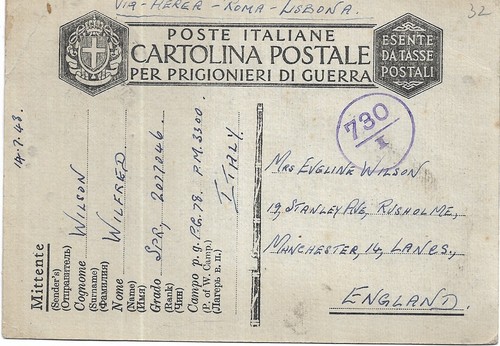 VIA-AEREA-ROMA-LISBONA.
32
POSTE ITALIANE
CARTOLINA POSTALE
PER PRIGIONIERI DI GUERRA
ESENTE
DA TASSE
POSTALI
730
I
14.7.43.
Mittente
(Sender's)
(Отправитель)
Cognome WILSON
(Surname)
(Фамилия)
Nome WILFRED.
(Name)
(Имя)
Grado SPR, 2027046
(Rank)
(Чин)
Campo p. g. P.G. 78. P.M. 3300.
(P. of W. Camp.)
(Лагерь в. п.)
ITALY
MRS EVELINE WILSON
19, STANLEY AVE, RUSHOLME,
MANCHESTER, 14, LANCS.,
ENGLAND.